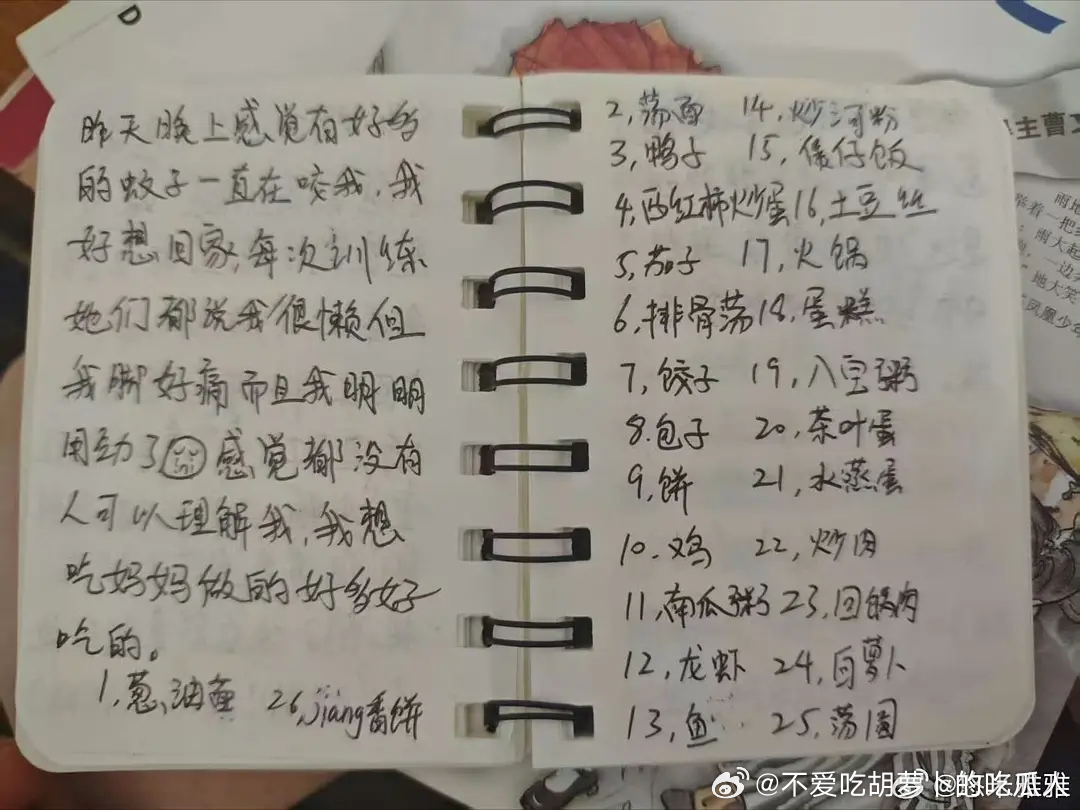 昨天晚上感觉有好多
的蚊子一直在咬我,我
好想回家,每次训练
她们都说我很懒但
我脚好痛而且我明明
用劲了 感觉都没有
人可以理解我,我想
吃妈妈做的好多好
吃的。
1,葱油鱼 26,jiang香饼
2,荡面 14,炒河粉
3,鸭子 15,煲仔饭
4,西红柿炒蛋 16,土豆丝
5,茄子 17,火锅
6,排骨荡 18,蛋糕
7,饺子 19,八宝粥
8.包子 20,茶叶蛋
9,饼 21,水蒸蛋
10.鸡 22,炒肉
11,南瓜粥 23,回锅肉
12,龙虾 24,白萝卜
13,鱼 25,荡圆
D
主曹文
雨地
举着一把
雨大起
一边
地大笑
凤凰少年
@不爱吃胡萝卜的吃瓜